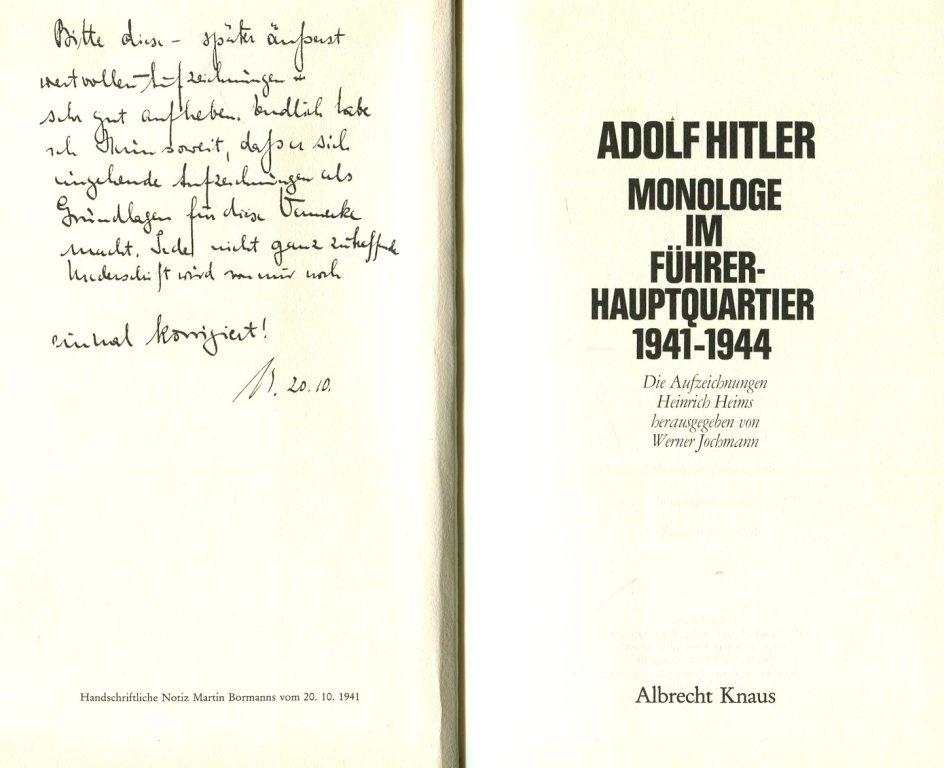 Bitte diese – später äußerst
wertvollen Aufzeichnungen –
sehr gut aufheben. Endlich habe
ich Heim soweit, daß er sich
eingehende Aufzeichnungen als
Grundlagen für diese Vermerke
macht. Jede nicht ganz zutreffende
Niederschrift wird von mir noch
einmal korrigiert!
B. 20.10.
Handschriftliche Notiz Martin Bormanns vom 20. 10. 1941
ADOLF HITLER
MONOLOGE
IM
FÜHRER-
HAUPTQUARTIER
1941-1944
Die Aufzeichnungen
Heinrich Heims
herausgegeben von
Werner Jochmann
Albrecht Knaus